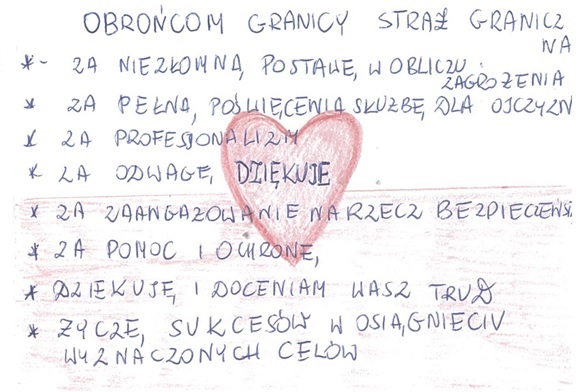 OBROŃCOM GRANICY STRAŻ GRANICZ
NA
*- ZA NIEZŁOMNĄ POSTAWĘ, W OBLICZU
ZAGROŻENIA
* ZA PEŁNĄ, POŚWIĘCENIA SŁUŻBĘ, DLA OJCZYZN
* ZA PROFESJONALIZM
* ZA ODWAGĘ, DZIĘKUJĘ
* ZA ZAANGAŻOWANIE NA RZECZ BEZPIECZEŃS
* ZA POMOC I OCHRONĘ,
* DZIĘKUJĘ, I DOCENIAM WASZ TRUD
* ŻYCZĘ, SUKCESÓW W OSIĄGNIĘCIU
WYZNACZONYCH CELÓW